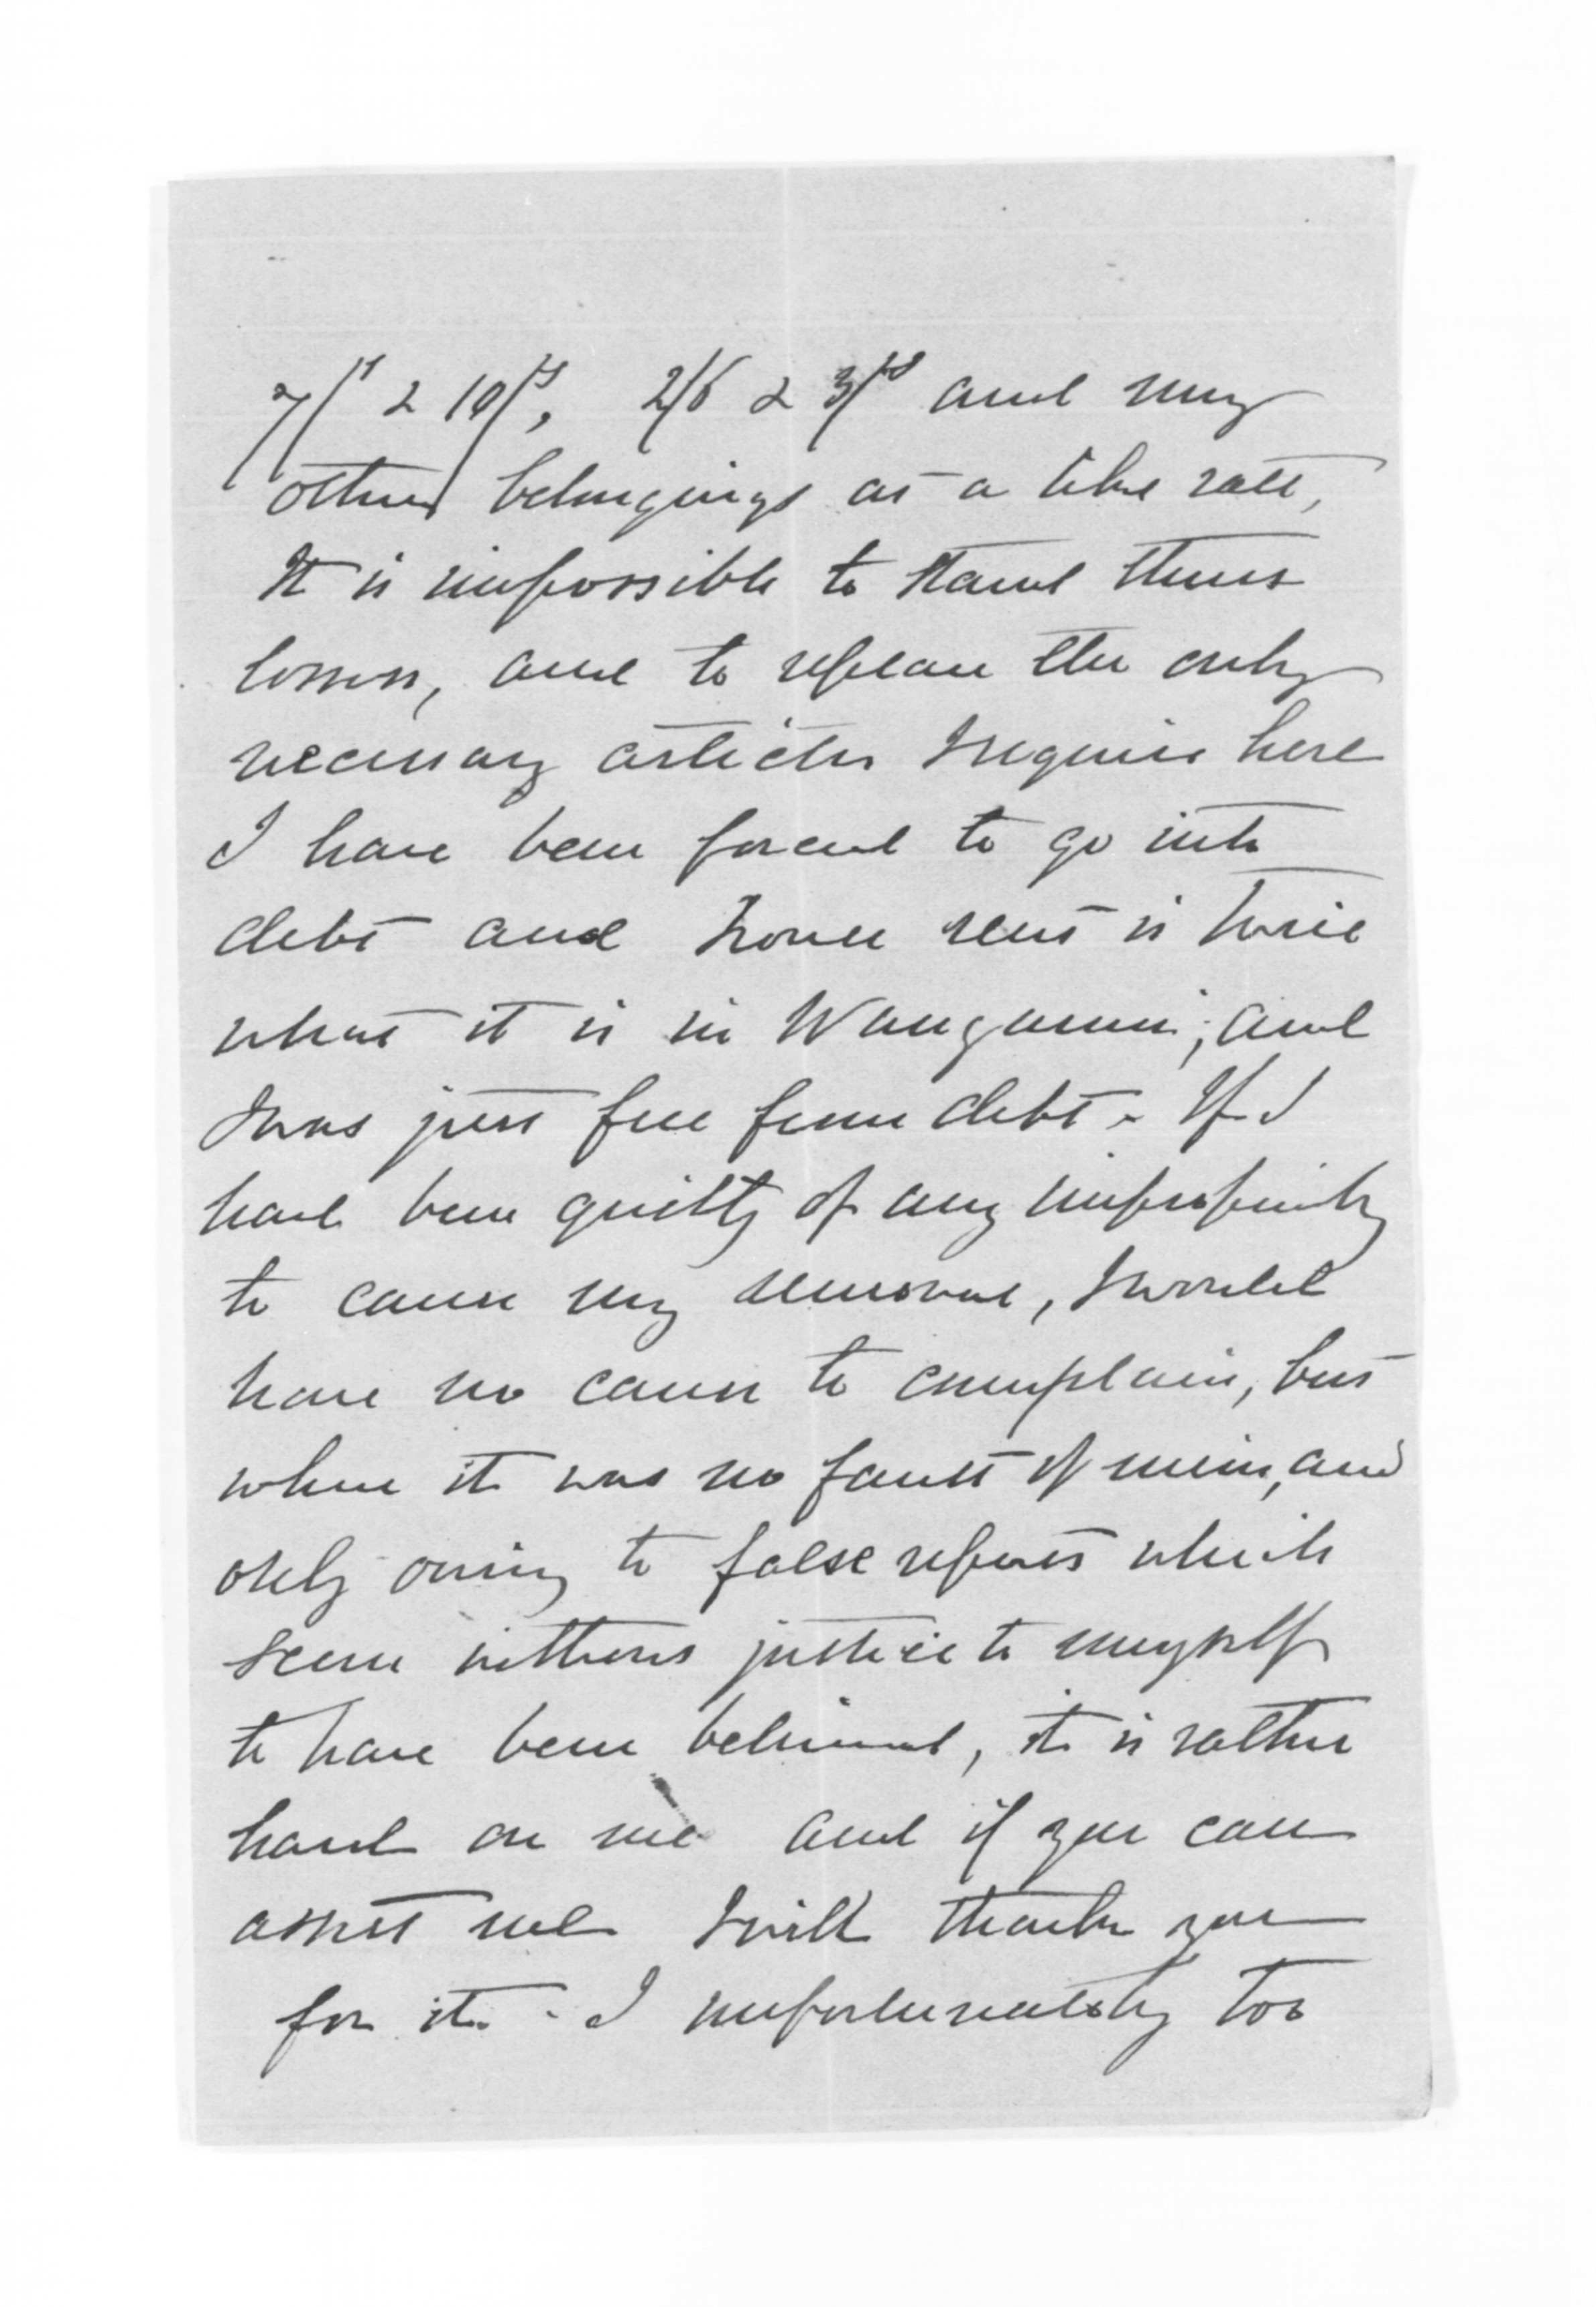 7/s & 10/s, 2/6 & 3/s and my
other belongings at a like rate,
It is impossible to stand these
losses, and to replace the only
necessary articles I require here
I have been forced to go into
debt and house rent is twice
what it is in Wanganui, and
I was just free from debt. If I
had been guilty of any impropriety
to cause my removal, I would
have no cause to complain, but
where it was no fault of mine, and
only owing to false reports which
seem without justice to myself
to have been believed, it is rather
hard on me and if you can
assist me I will thank you
for it. - I unfortunately too